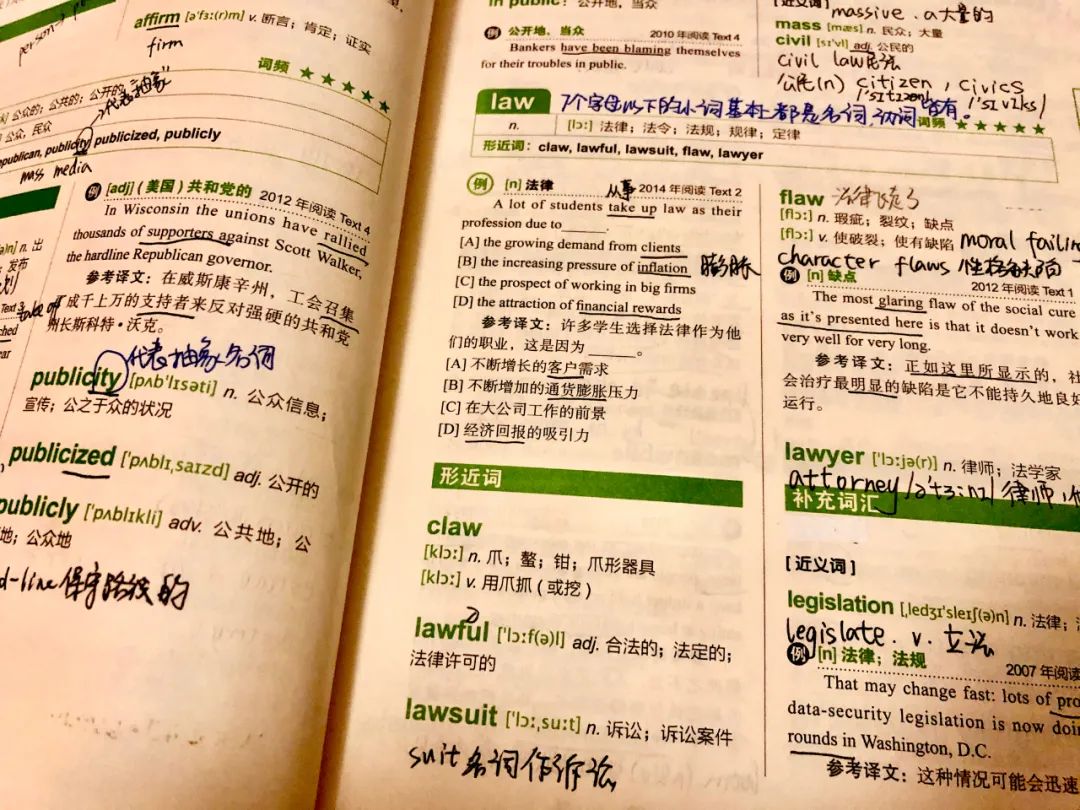 affirm [ə'fɜː(r)m] v. 断言；肯定；证实
firm
词频 ★★★★★
公众的；公共的；公开的
代表"抽象"
公众，民众
republican, publicity, publicized, publicly
mass media
例 [adj]（美国）共和党的 2012 年阅读 Text 4
In Wisconsin the unions have rallied
thousands of supporters against Scott Walker,
the hardline Republican governor.
参考译文：在威斯康辛州，工会召集
了成千上万的支持者来反对强硬的共和党
州长斯科特·沃克。
代表抽象名词
publicity [pʌb'lɪsəti] n. 公众信息；
宣传；公之于众的状况
publicized ['pʌblɪˌsaɪzd] adj. 公开的
publicly ['pʌblɪkli] adv. 公共地；公
地；公众地
d-line 保守路线的
n. 出
发布
Text 3
take off
in public：公开地，当众
例 公开地，当众 2010 年阅读 Text 4
Bankers have been blaming themselves
for their troubles in public.
law 7个字母以下的小词基本都是名词，动词皆有。
词频 ★★★★★
n. [lɔː] 法律；法令；法规；规律；定律
形近词：claw, lawful, lawsuit, flaw, lawyer
例 [n] 法律 从事 2014 年阅读 Text 2
A lot of students take up law as their
profession due to______.
[A] the growing demand from clients
[B] the increasing pressure of inflation 膨胀
[C] the prospect of working in big firms
[D] the attraction of financial rewards
参考译文：许多学生选择法律作为他
们的职业，这是因为______。
[A] 不断增长的客户需求
[B] 不断增加的通货膨胀压力
[C] 在大公司工作的前景
[D] 经济回报的吸引力
形近词
claw
[klɔː] n. 爪；螯；钳；爪形器具
[klɔː] v. 用爪抓（或挖）
lawful ['lɔːf(ə)l] adj. 合法的；法定的；
法律许可的
lawsuit ['lɔːˌsuːt] n. 诉讼；诉讼案件
suit 名词作诉讼
[近义词] massive. a大量的
mass [mæs] n. 民众；大量
civil [sɪ'vl] adj. 公民的
civil law民法
公民(n) citizen, civics
/'sɪtɪzən/ /'sɪvɪks/
flaw 法律破了
[flɔː] n. 瑕疵；裂纹；缺点
[flɔː] v. 使破裂；使有缺陷 moral failin
character flaws 性格缺陷
例 [n] 缺点 2012 年阅读 Text 1
The most glaring flaw of the social cure
as it's presented here is that it doesn't work
very well for very long.
参考译文：正如这里所显示的，社
会治疗最明显的缺陷是它不能持久地良好
运行。
lawyer ['lɔːjə(r)] n. 律师；法学家
attorney 律师，
补充词汇
[近义词]
legislation [ˌledʒɪ'sleɪʃ(ə)n] n. 法律；
legislate. v. 立法
例 [n] 法律；法规 2007 年阅读
That may change fast: lots of pro
data-security legislation is now doin
rounds in Washington, D.C.
参考译文：这种情况可能会迅速